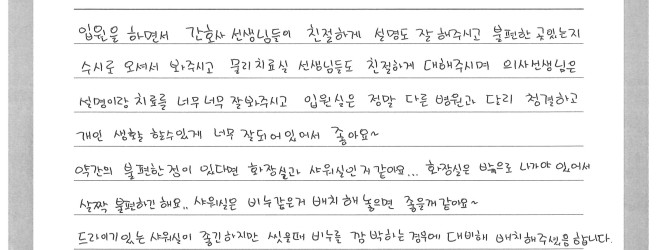 입원을 하면서 간호사 선생님들이 친절하게 설명도 잘 해주시고 불편한 곳있는지
수시로 오셔서 봐주시고 물리치료실 선생님들도 친절하게 대해주시며 의사선생님은
설명이랑 치료를 너무너무 잘봐주시고 입원실은 정말 다른 병원과 달리 청결하고
개인 생활을 할수있게 너무 잘되어있어서 좋아요~
약간의 불편한점이 있다면 화장실과 샤워실인거 같아요... 화장실은 밖으로 나가야 있어서
살짝 불편하긴 해요.. 샤워실은 비누같은거 배치해 놓으면 좋을꺼같아요~
드라이기있는 샤워실이 좋긴하지만 씻을때 비누를 깜박하는 경우에 대비해 배치해주셨음합니다.